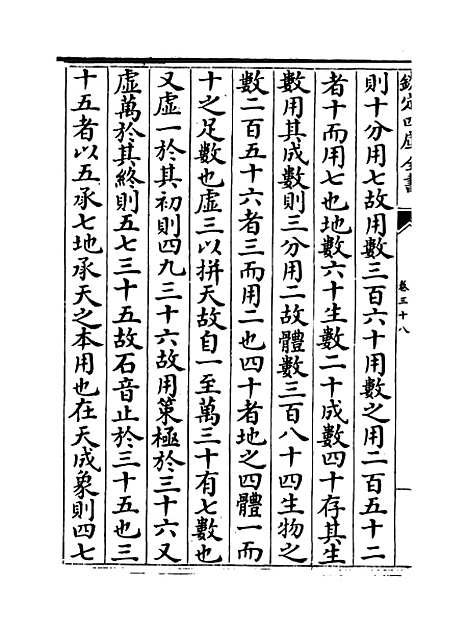 欽定四庫全書
卷三十八
則十分用七故用數三百六十用數之用二百五十二
者十而用七也地數六十生數二十成數四十存其生
數用其成數則三分用二故體數三百八十四生物之
數二百五十六者三而用二也四十者地之四體一而
十之足數也虛三以拼天故自一至萬三十有七數也
又虛一於其初則四九三十六故用策極於三十六又
虛萬於其終則五七三十五故石音止於三十五也三
十五者以五承七地承天之本用也在天成象則四七